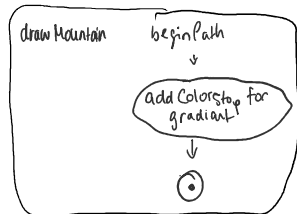 draw Mountain
beginPath
add Colorstop for
gradiant